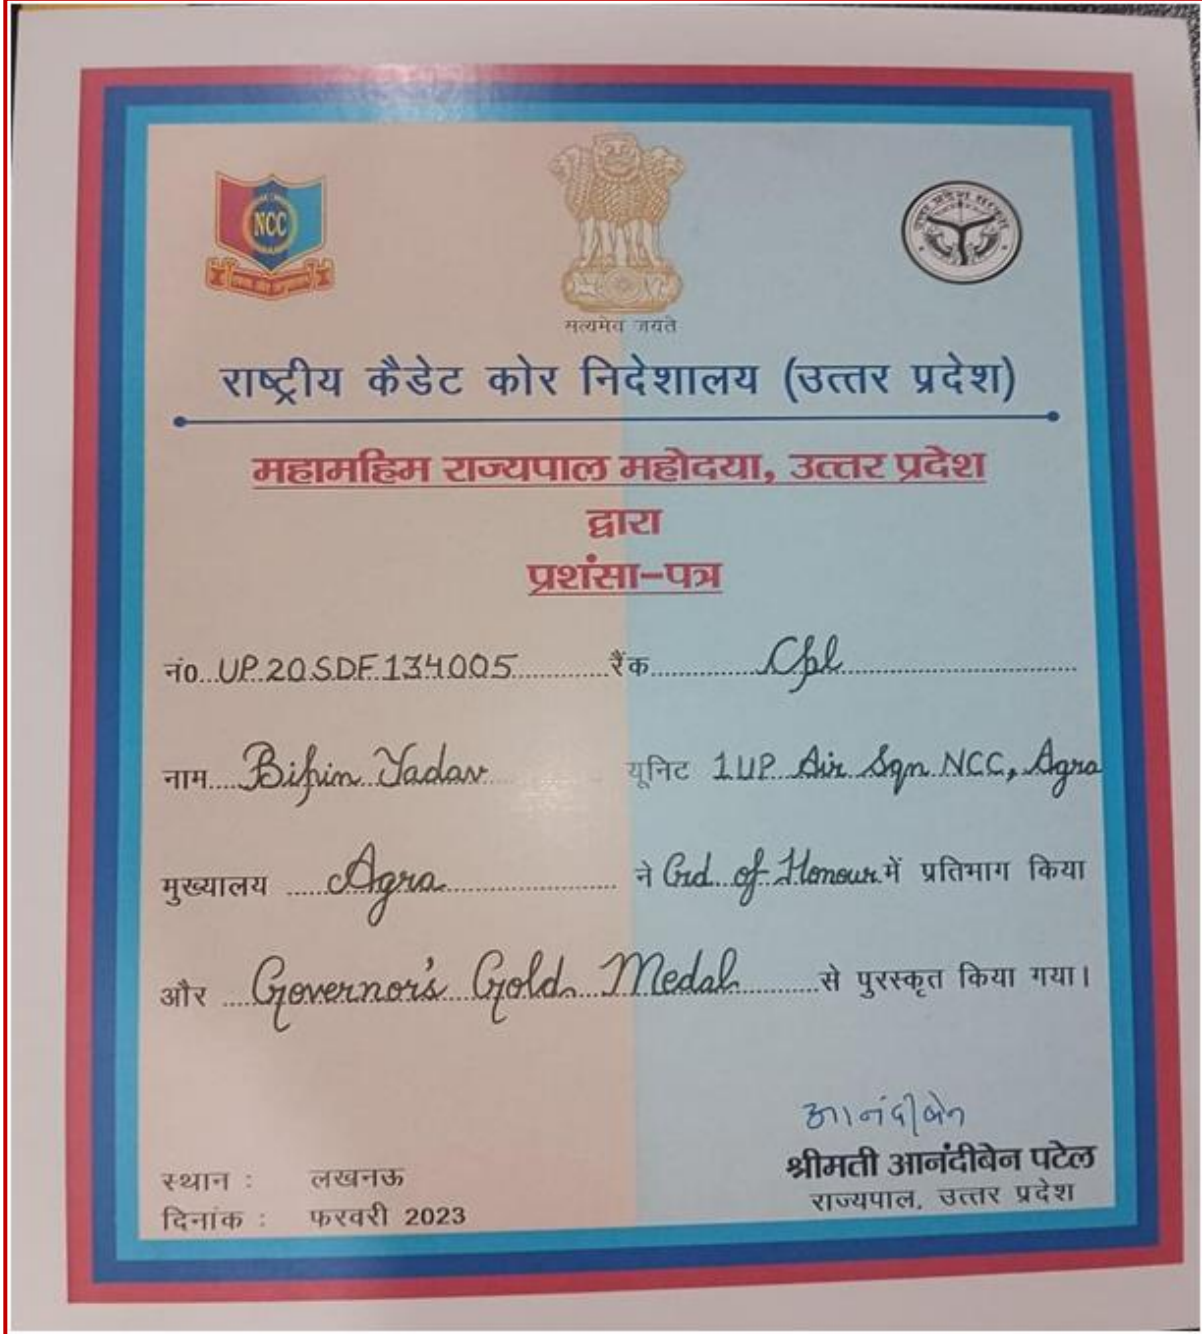 NCC
एकता और अनुशासन
उत्तर प्रदेश सरकार
सत्यमेव जयते
राष्ट्रीय कैडेट कोर निदेशालय (उत्तर प्रदेश)
महामहिम राज्यपाल महोदया, उत्तर प्रदेश
द्वारा
प्रशंसा-पत्र
नं0 UP20SDF134005 रैंक Cpl
नाम Bipin Yadav यूनिट 1 UP Air Sqn NCC, Agra
मुख्यालय Agra ने Grd of Honour में प्रतिभाग किया
और Governor's Gold Medal से पुरस्कृत किया गया।
आनंदीबेन
श्रीमती आनंदीबेन पटेल
स्थान : लखनऊ राज्यपाल, उत्तर प्रदेश
दिनांक : फरवरी 2023